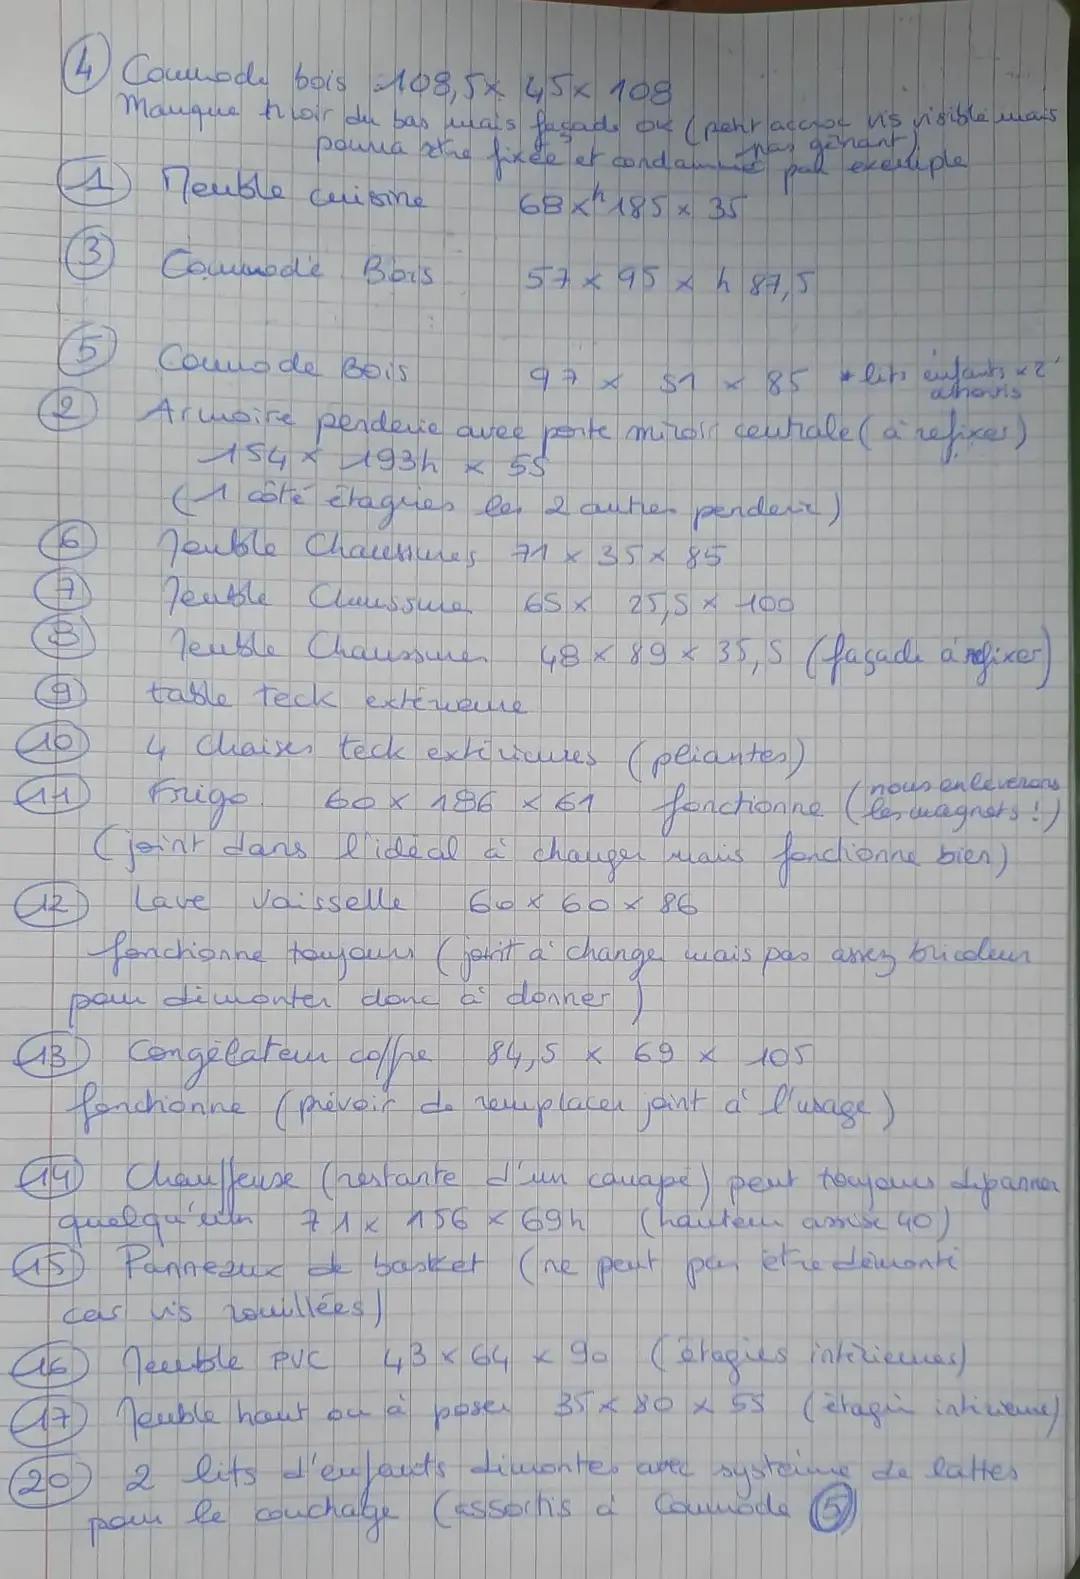 ④ Commode bois 108,5 x 45 x 108
Manque tiroir du bas mais façade ok (petit accroc vis visible mais
pas gênant)
pourra être fixée et condamnée par exemple
① Meuble cuisine 68 x h 185 x 35
③ Commode Bois 57 x 95 x h 87,5
⑤ Commode Bois 97 x 51 x 85 * lits enfants x 2
assortis
② Armoire penderie avec porte miroir centrale (à refixer)
154 x 193h x 55
(1 côté étagères les 2 autres penderie)
⑥ Meuble Chaussures 71 x 35 x 85
⑦ Meuble Chaussure 65 x 25,5 x 100
⑧ Meuble Chaussures 48 x 89 x 35,5 (façade à refixer)
⑨ table teck extérieure
⑩ 4 chaises teck extérieures (pliantes)
⑪ Frigo 60 x 186 x 61 fonctionne (nous enlèverons
les magnets !)
(joint dans l'idéal à changer mais fonctionne bien)
⑫ Lave Vaisselle 60 x 60 x 86
fonctionne toujours (joint à changer mais pas assez bricoleur
pour démonter donc à donner)
⑬ Congélateur coffre 84,5 x 69 x 105
fonctionne (prévoir de remplacer joint à l'usage)
⑭ Chauffeuse (restante d'un canapé) peut toujours dépanner
quelqu'un 71 x 156 x 69h (hauteur assise 40)
⑮ Panneaux de basket (ne peut pas être démonté
car vis rouillées)
⑯ Meuble PVC 43 x 64 x 90 (étagères intérieures)
⑰ Meuble haut ou à poser 35 x 80 x 55 (étagère intérieure)
⑳ 2 lits d'enfants démontés avec système de lattes
pour le couchage (assortis à Commode ⑤